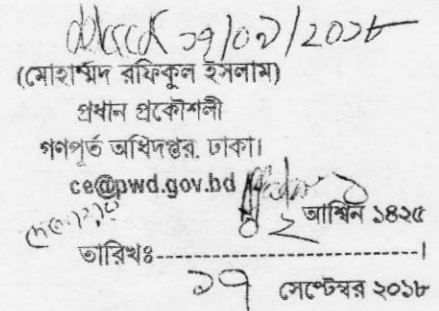 ১৭/০৯/২০১৮
(মোহাম্মদ রফিকুল ইসলাম)
প্রধান প্রকৌশলী
গণপূর্ত অধিদপ্তর, ঢাকা।
ce@pwd.gov.bd
০২ আশ্বিন ১৪২৫
তারিখঃ------------------------------।
১৭ সেপ্টেম্বর ২০১৮